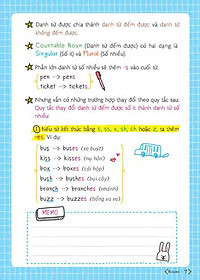 Danh từ được chia thành danh từ đếm được và danh từ
không đếm được.
Countable Noun (Danh từ đếm được) có hai dạng là
Singular (Số ít) và Plural (Số nhiều).
Phần lớn danh từ số nhiều sẽ thêm -s vào cuối từ.
pen -> pens
ticket -> tickets
Nhưng vẫn có những trường hợp thay đổi theo quy tắc sau:
Quy tắc thay đổi danh từ đếm được số ít thành danh từ số
nhiều
1 Nếu từ kết thúc bằng s, ss, x, sh, ch hoặc z, ta thêm
-es. Ví dụ:
bus -> buses (xe buýt)
kiss -> kisses (nụ hôn)
box -> boxes (cái hộp)
bush -> bushes (bụi cây)
branch -> branches (nhánh)
buzz -> buzzes (tiếng vo ve)
MEMO
Nouns 7